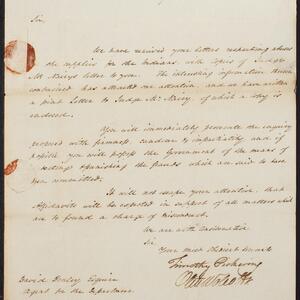 Sir,
We have received your letters respecting abuses
the supplies for the Indians, with copies of Judge
Mc Nairy's letter to you. The interesting information therein
contained has attracted our attention, and we have written
a joint Letter to Judge Mc Nairy, of which a copy is
enclosed.
You will immediately prosecute the enquiry
proceed with firmness, candour & impartiality, and if
possible, you will possess the Government of the means of
detecting & punishing the frauds which are said to have
been committed.
It will not escape your attention, that
Affidavits will be expected in support of all matters which
are to found a charge of misconduct.
We are with consideration
Sir,
Your most obedient servants
Timothy Pickering
David Henley Esquire
Agent for the Department